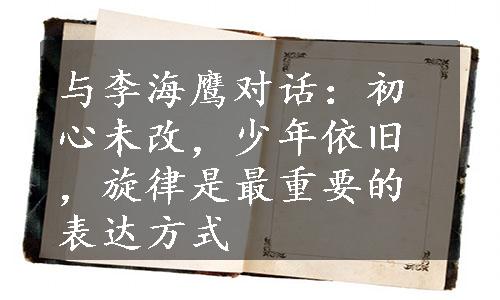 与李海鹰对话：初
心未改，少年依旧
，旋律是最重要的
表达方式